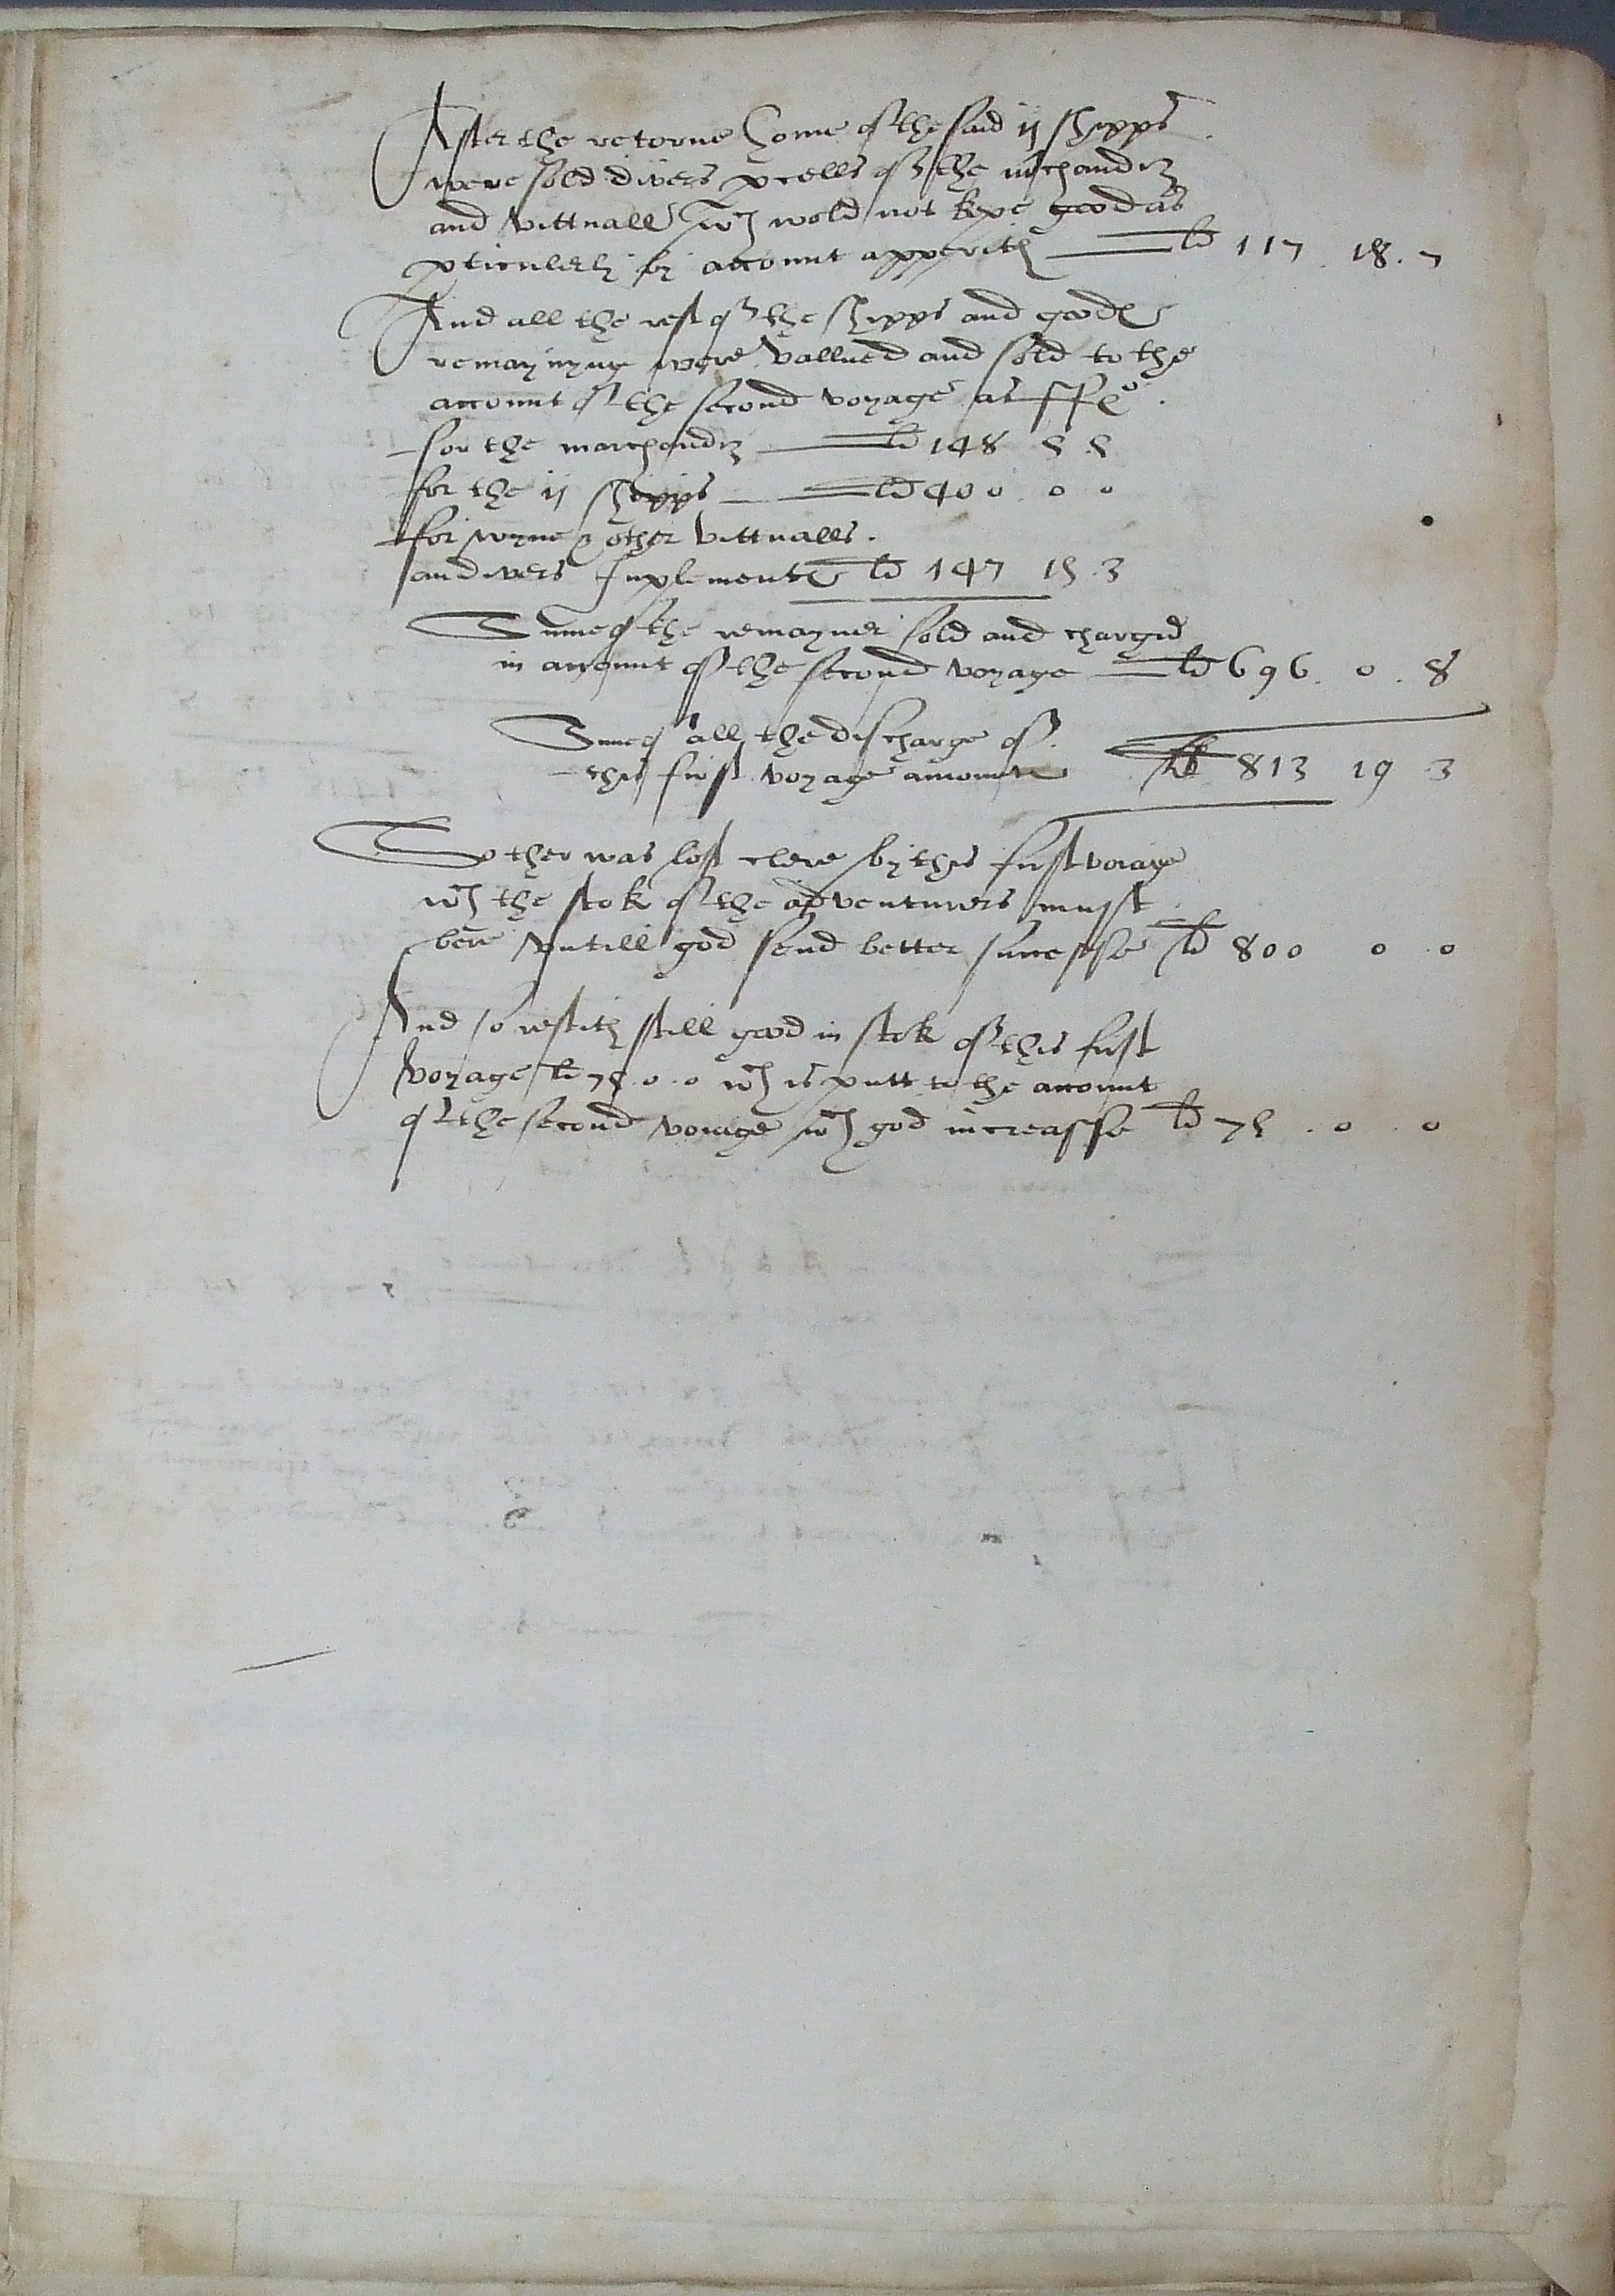 After the retorne home of the said ij shipps
were sold divers pcells of the mchandiz
and vittuall wch wold not kepe good as
pticulerly by account apperith li 117 . 18 . 7
And all the rest of the shipps and goodes
remaynyng were vallued and sold to the
account of the second voyage as
for the marchandiz li 148 5 5
for the ij shipps li 400 . 0 0
for wyne & other vittualls .
and ivers Implements li 147 15 . 3
Sume of the remayner sold and chargid
in account of the second voyage li 696 . 0 . 8
Sume of all the discharge of
this first voyage amounte li 813 19 3
So ther was lost clere by this first voiage
wch the stok of the adventurers must
bere untill god send better successe li 800 0 0
And so restith still good in stok of this first
voyage li 75 . 0 . 0 wch is putt to the account
of the second voiage wch god increasse li 75 . 0 . 0